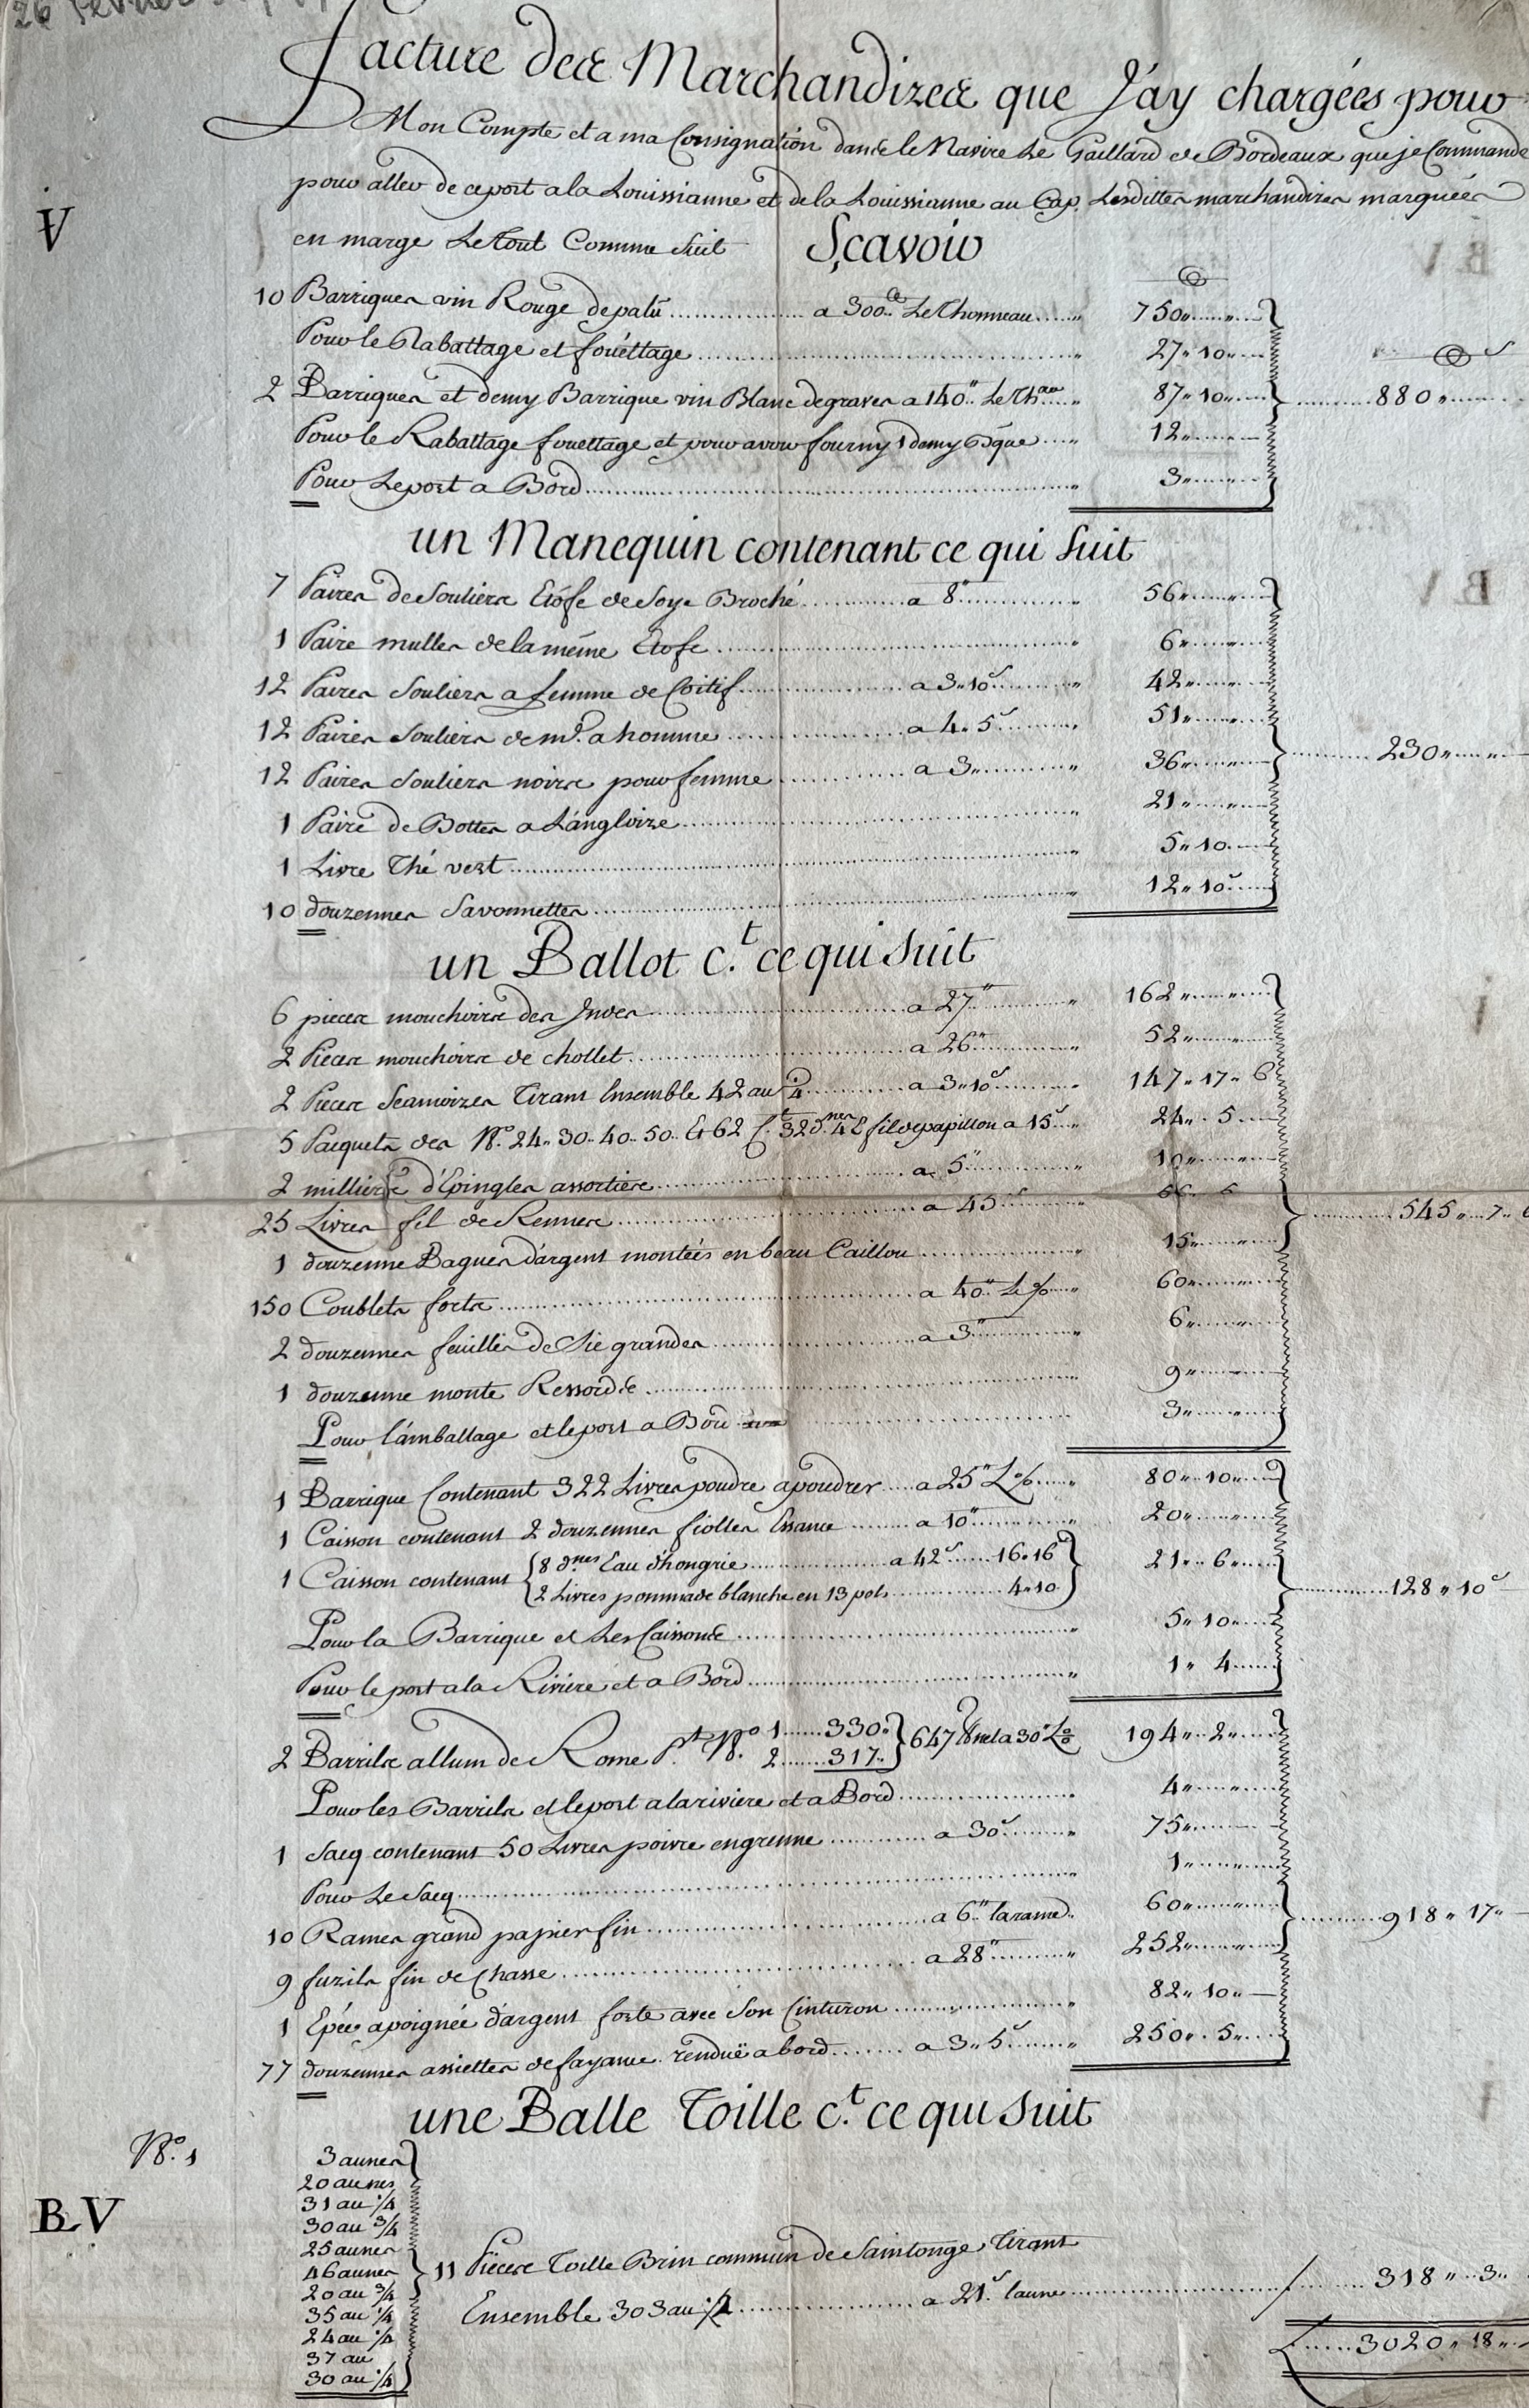 26 fevrier
Facture des Marchandizes que J'ay chargées pour
Mon Compte et a ma Consignation dans le Navire Le Gaillard de Bordeaux que je Commande
pour aller de ce port a la Louissianne et de la Louissianne au Cap. Lesdittes marchandizes marquées
V
en marge Le tout Comme suit Sçavoir
10 Barriques vin Rouge de palu a 300 Le Thonneau 750
Pour le Rabattage et fouëttage 27 10
2 Barriques et demy Barrique vin Blanc de graves a 140 Le Th.au 87 10 880
Pour le Rabattage fouettage et pour avoir fourny 1 demy Bque 12
Pour Le port a Bord 3
un Manequin contenant ce qui suit
7 Paires de Souliers Etofe de Soye Broché a 8 56
1 Paire mulles de la même Etofe 6
12 Paires Souliers a femme de Coitif a 3 10 s 42
12 Paires Souliers de md. a homme a 4 5 s 51
12 Paires Souliers noirs pour femme a 3 36 230
1 Paire de Bottes a L'angloize 21
1 Livre Thé vert 5 10
10 douzennes Savonnettes 12 10 s
un Ballot c.t ce qui suit
6 pieces mouchoirs des Indes a 27 162
2 Pieces mouchoirs de chollet a 26 52
2 Pieces Siamoizes Tirant Ensemble 42 au 1/4 a 3 10 s 147 17 6
5 Pacquets des No. 24 30 40 50 Et 62 C.t 32 d.nes 1/2 fil de papillon a 15 s 24 5
2 milliers d'Epingles assorties a 5 10
25 Livres fil de Rennes a 45 s 56 5 545 7 6
1 douzenne Bagues d'argent montées en beau Caillou 15
150 Coublets forts a 40 Le % 60
2 douzennes feuilles de Sie grandes a 3 6
1 douzenne monte Ressords 9
Pour L'amballage et le port a Bord 3
1 Barrique Contenant 322 Livres poudre a poudrer a 25 L % 80 10
1 Caisson contenant 2 douzennes fiolles Essance a 10 20
1 Caisson contenant { 8 d.nes Eau d'hongrie a 42 s 16 16 s } 21 6
2 Livres pommade blanche en 13 pots 4 10 128 10 s
Pour la Barrique et Les Caissons 5 10
Pour le port a la Riviere et a Bord 1 4
2 Barrils allum de Rome P.t No. 1 330 } 647 lb net a 30 L % 194 2
2 317
Pour les Barrils et le port a la riviere et a Bord 4
1 Sacq contenant 50 Livres poivre en grenne a 30 s 75
Pour Le Sacq 1
10 Rames grand papier fin a 6 la rame 60 918 17
9 fuzils fin de Chasse a 28 252
1 Epée a poignée d'argent forte avec Son Cinturon 82 10
77 douzennes assiettes de fayance rendue a bord a 3 5 s 250 5
une Balle Toille c.t ce qui suit
No. 1
BV
3 aunes
20 aunes
31 au 1/4
30 au 3/4
25 aunes
46 aunes
20 au 3/4
35 au 1/4
24 au 1/4
37 au
30 au 1/4
11 Pieces Toille Brin commun de Saintonge Tirant
Ensemble 303 au 1/2 a 21 s l'aune 318 3
3020 18